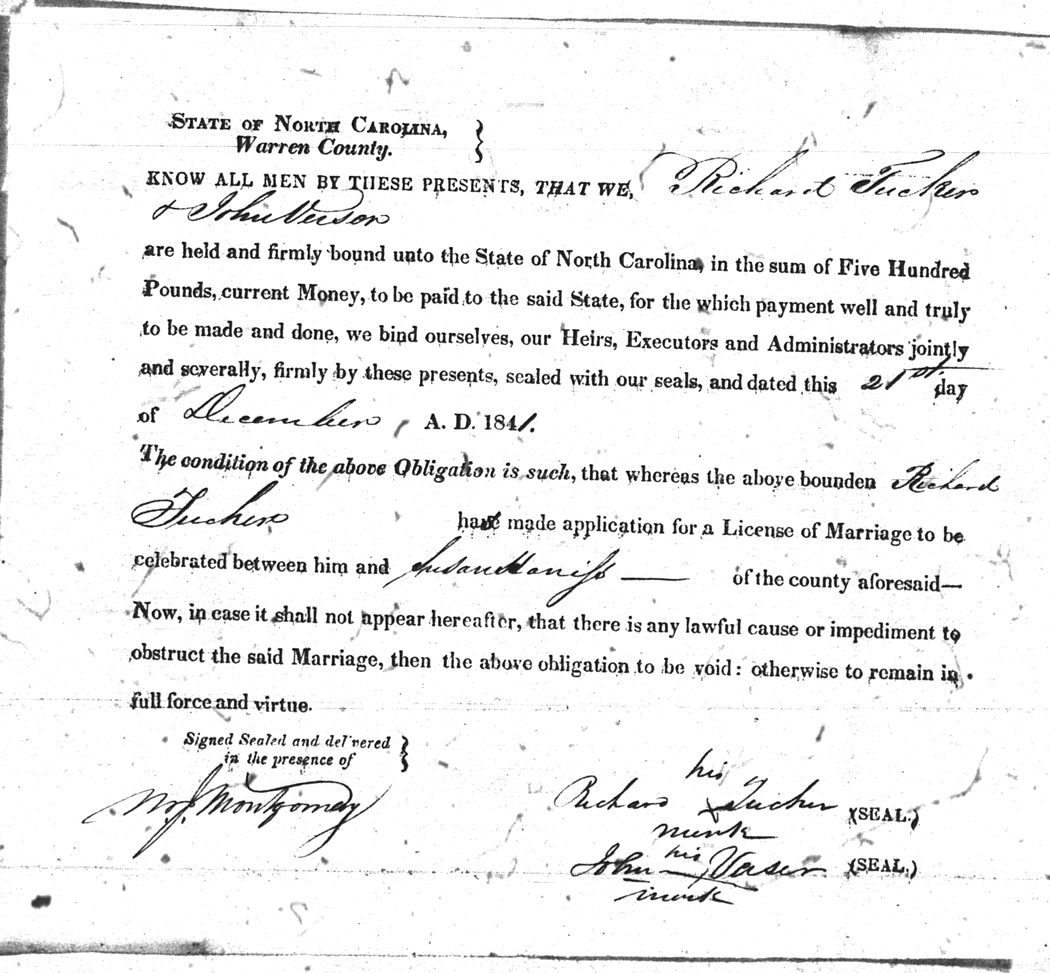 STATE OF NORTH CAROLINA,
Warren County.
KNOW ALL MEN BY THESE PRESENTS, THAT WE, Richard Tucker
& John
are held and firmly bound unto the State of North Carolina, in the sum of Five Hundred
Pounds, current Money, to be paid to the said State, for the which payment well and truly
to be made and done, we bind ourselves, our Heirs, Executors and Administrators jointly
and severally, firmly by these presents, sealed with our seals, and dated this 21st day
of December, A. D. 1841.
The condition of the above Obligation is such, that whereas the above bounden Richard
Tucker has made application for a License of Marriage to be
celebrated between him and Susan of the county aforesaid—
Now, in case it shall not appear hereafter, that there is any lawful cause or impediment to
obstruct the said Marriage, then the above obligation to be void: otherwise to remain in
full force and virtue.
Signed Sealed and delivered
in the presence of
Montgomery
his
Richard X Tucker (SEAL.)
mark
his
John (SEAL.)
mark